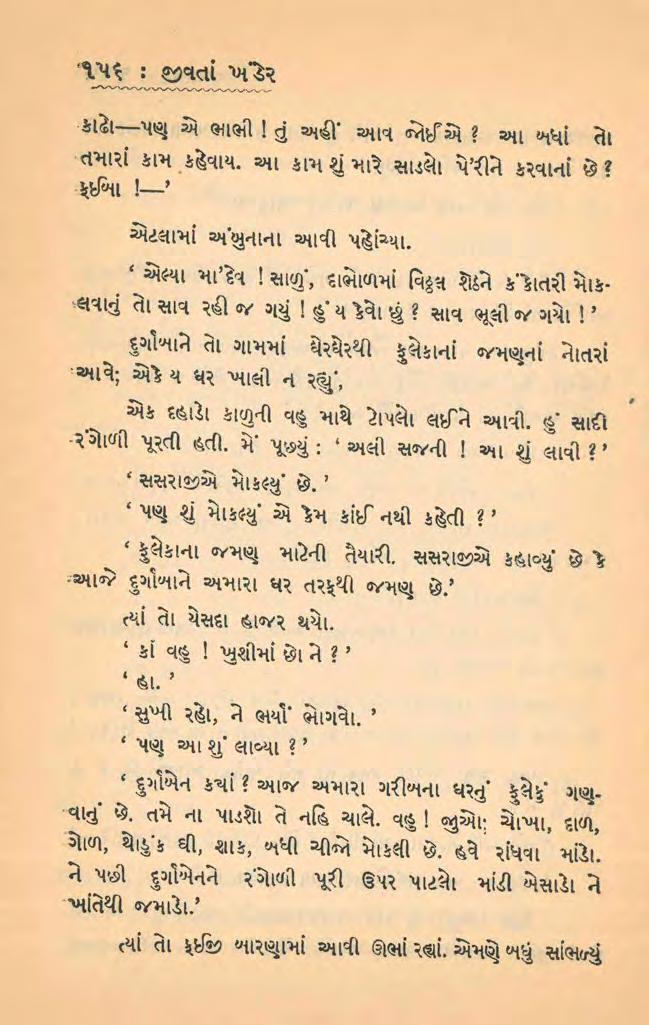 ૧૫૬ : જીવતાં ખંડેર
કાઢો—પણ એ ભાભી ! તું અહીં આવ જોઈએ ? આ બધાં તો
તમારાં કામ કહેવાય. આ કામ શું મારે સાડલો પે'રીને કરવાનાં છે ?
ફઈબા !—'
એટલામાં અંબુનાના આવી પહોંચ્યા.
‘ એલ્યા મા'દેવ ! સાળું, દાભોળમાં વિઠ્ઠલ શેઠને કંકોતરી મોક-
લવાનું તો સાવ રહી જ ગયું ! હું ય કેવો છું ? સાવ ભૂલી જ ગયો ! ’
દુર્ગાબાને તો ગામમાં ઘેરઘેરથી ફુલેકાનાં જમણનાં નોતરાં
આવે; એકે ય ઘર ખાલી ન રહ્યું,
એક દહાડો કાળુની વહુ માથે ટોપલો લઈને આવી. હું સાદી
રંગોળી પૂરતી હતી. મેં પૂછ્યું : ‘ અલી સજની ! આ શું લાવી ? ’
‘ સસરાજીએ મોકલ્યું છે. ’
‘ પણ શું મોકલ્યું એ કેમ કાંઈ નથી કહેતી ? ’
‘ ફુલેકાના જમણ માટેની તૈયારી. સસરાજીએ કહાવ્યું છે કે
આજે દુર્ગાબાને અમારા ઘર તરફથી જમણ છે.’
ત્યાં તો યેસદા હાજર થયો.
‘ કાં વહુ ! ખુશીમાં છો ને ? ’
‘ હા. ’
‘ સુખી રહો, ને ભર્યાં ભોગવો. ’
‘ પણ આ શું લાવ્યા ? ’
‘ દુર્ગાબેન ક્યાં ? આજ અમારા ગરીબના ઘરનું ફુલેકું ગણ-
વાનું છે. તમે ના પાડશો તે નહિ ચાલે. વહુ ! જુઓ; ચોખા, દાળ,
ગોળ, થોડુંક ઘી, શાક, બધી ચીજો મોકલી છે. હવે રાંધવા માંડો.
ને પછી દુર્ગાબેનને રંગોળી પૂરી ઉપર પાટલો માંડી બેસાડો ને
ખાંતેથી જમાડો.’
ત્યાં તો ફઈજી બારણામાં આવી ઊભાં રહ્યાં. એમણે બધું સાંભળ્યું